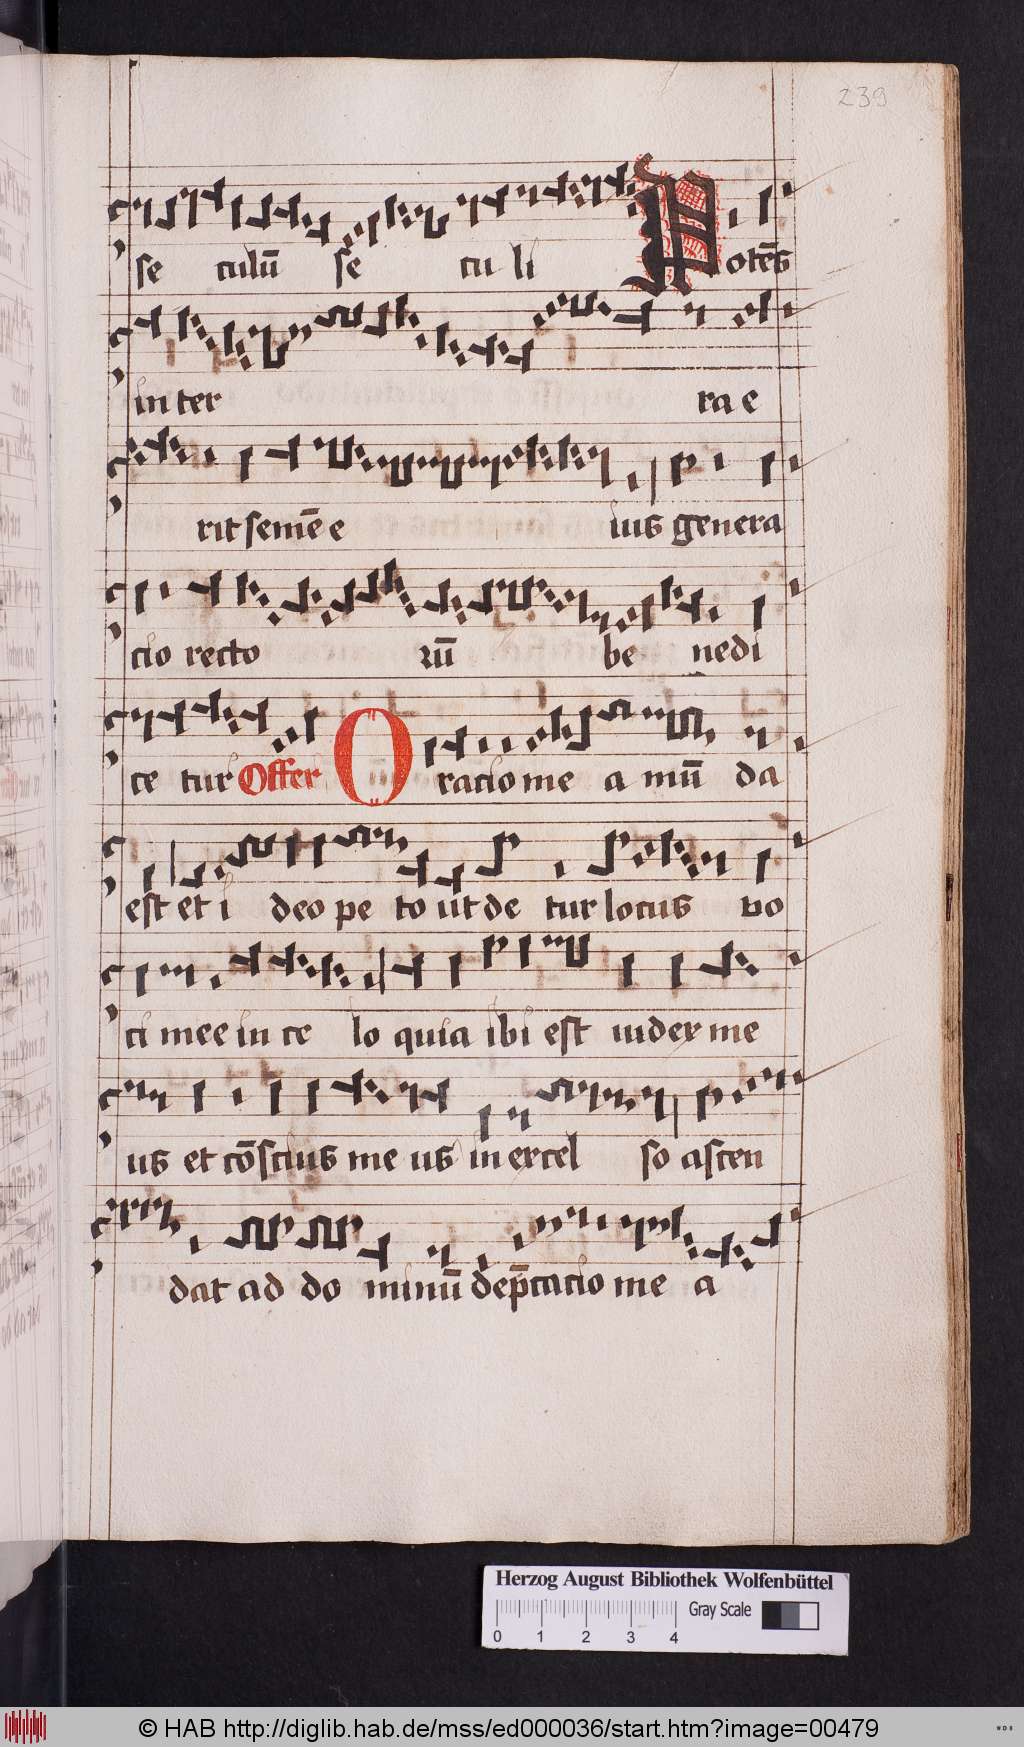 239
se culū se cu li Potēs
in ter ra e
rit semē e ius genera
cio recto rū be nedi
ce tur Offer Oracio me a mū da
est et i deo pe to ut de tur locus vo
ci mee in ce lo quia ibi est iudex me
us et cōscius me us in excel so ascen
dat ad do minū dep̄cacio me a
Herzog August Bibliothek Wolfenbüttel
Gray Scale
0 1 2 3 4
© HAB http://diglib.hab.de/mss/ed000036/start.htm?image=00479